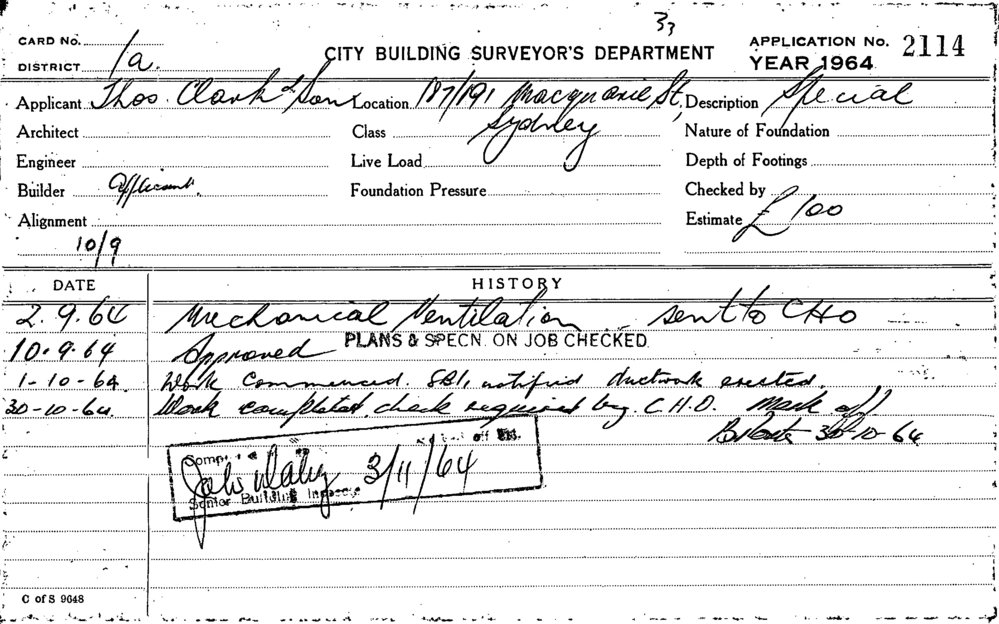 33
CARD No.
DISTRICT 1a.
CITY BUILDING SURVEYOR'S DEPARTMENT
APPLICATION No. 2114
YEAR 1964
Applicant Thos. Clark & Son Location 187/191 Macquarie St, Sydney Description Special
Architect Class Nature of Foundation
Engineer Live Load Depth of Footings
Builder applicant. Foundation Pressure Checked by
Alignment Estimate £100
10/9
DATE HISTORY
2.9.64 Mechanical Ventilation sent to CHO
10.9.64 Approved PLANS & SPECN. ON JOB CHECKED
1-10-64 Work commenced. SBI, notified ductwork erested.
30-10-64 Work completed, check required by C.H.O. Mark off
30-10-64
off
3/11/64
Senior Building Inspector
C of S 9648